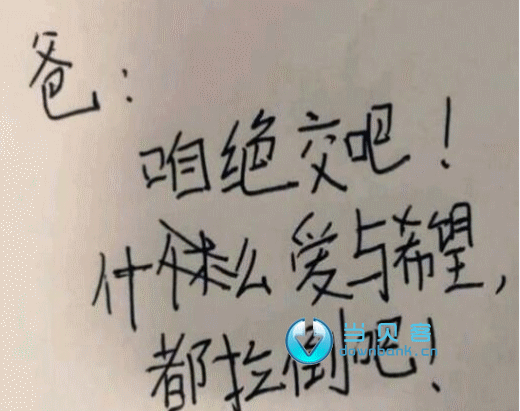 爸：
咱绝交吧！
什么爱与希望，
都拉倒吧！
当贝客
downbank.cn